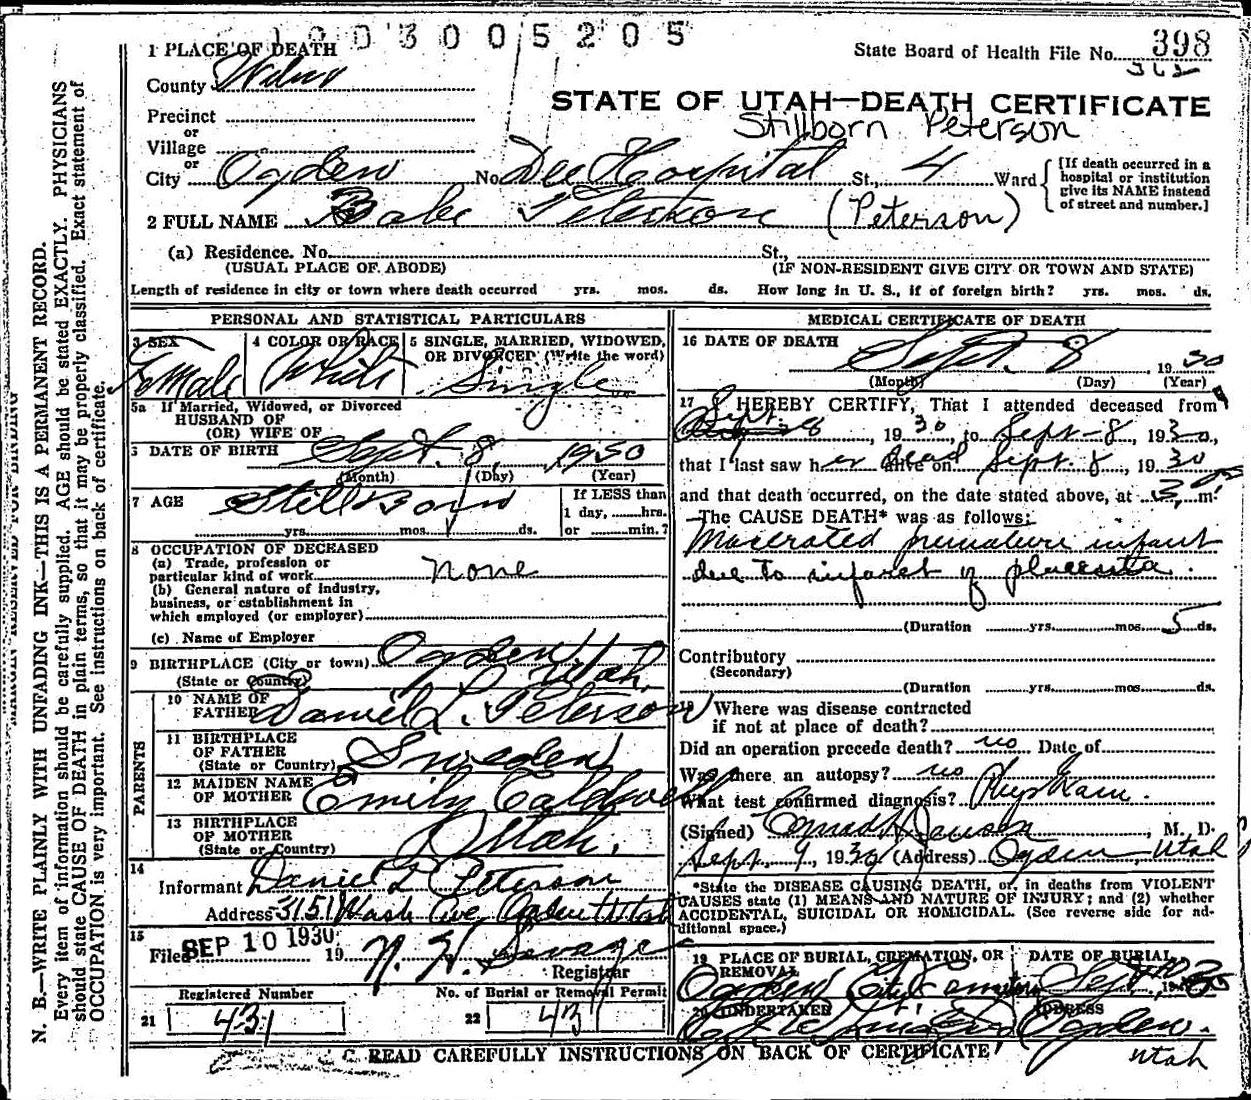 1 9 0 3 0 0 5 2 0 5
State Board of Health File No. 398
362
1 PLACE OF DEATH
County Weber
STATE OF UTAH—DEATH CERTIFICATE
Stillborn Peterson
Precinct
or
Village
or
City Ogden No. Dee Hospital St., 4 Ward
[If death occurred in a hospital or institution give its NAME instead of street and number.]
2 FULL NAME Babe Peterson (Peterson)
(a) Residence. No. St.,
(USUAL PLACE OF ABODE) (IF NON-RESIDENT GIVE CITY OR TOWN AND STATE)
Length of residence in city or town where death occurred yrs. mos. ds. How long in U. S., if of foreign birth? yrs. mos. ds.
PERSONAL AND STATISTICAL PARTICULARS
3 SEX Female
4 COLOR OR RACE White
5 SINGLE, MARRIED, WIDOWED, OR DIVORCED (Write the word) Single
5a If Married, Widowed, or Divorced
HUSBAND OF
(OR) WIFE OF
6 DATE OF BIRTH Sept. 8, 1930
(Month) (Day) (Year)
7 AGE StillBorn
yrs. mos. ds.
If LESS than
1 day, hrs.
or min.?
8 OCCUPATION OF DECEASED
(a) Trade, profession or
particular kind of work none
(b) General nature of industry,
business, or establishment in
which employed (or employer)
(c) Name of Employer
9 BIRTHPLACE (City or town) Ogden
(State or Country) Utah.
PARENTS
10 NAME OF
FATHER Daniel L. Peterson
11 BIRTHPLACE
OF FATHER
(State or Country) Sweden
12 MAIDEN NAME
OF MOTHER Emily Caldwell
13 BIRTHPLACE
OF MOTHER
(State or Country) Utah.
14
Informant Daniel L Peterson
Address 3151 Wash Ave, Ogden Utah
15
Filed SEP 10 1930 19 N. H. Savage
Registrar
Registered Number
21 431
No. of Burial or Removal Permit
22 431
MEDICAL CERTIFICATE OF DEATH
16 DATE OF DEATH Sept. 8 1930
(Month) (Day) (Year)
17 I HEREBY CERTIFY, That I attended deceased from
Sept. 8, 1930, to Sept-8, 1930,
that I last saw her dead alive on Sept. 8, 1930
and that death occurred, on the date stated above, at 3 m.
The CAUSE DEATH* was as follows:
Macerated premature infant
due to infarct of placenta.
(Duration yrs. mos. 5 ds.
Contributory
(Secondary)
(Duration yrs. mos. ds.
18 Where was disease contracted
if not at place of death?
Did an operation precede death? no Date of
Was there an autopsy? no
What test confirmed diagnosis? Phys Exam.
(Signed) M. D.
Sept. 9, 1930 (Address) Ogden, Utah
*State the DISEASE CAUSING DEATH, or, in deaths from VIOLENT
CAUSES state (1) MEANS AND NATURE OF INJURY; and (2) whether
ACCIDENTAL, SUICIDAL OR HOMICIDAL. (See reverse side for ad-
ditional space.)
19 PLACE OF BURIAL, CREMATION, OR REMOVAL
Ogden City
DATE OF BURIAL
Sept 10 1930
20 UNDERTAKER
ADDRESS
Ogden.
Utah
READ CAREFULLY INSTRUCTIONS ON BACK OF CERTIFICATE
N. B.—WRITE PLAINLY WITH UNFADING INK—THIS IS A PERMANENT RECORD.
Every item of information should be carefully supplied. AGE should be stated EXACTLY. PHYSICIANS
should state CAUSE OF DEATH in plain terms, so that it may be properly classified. Exact statement of
OCCUPATION is very important. See instructions on back of certificate.